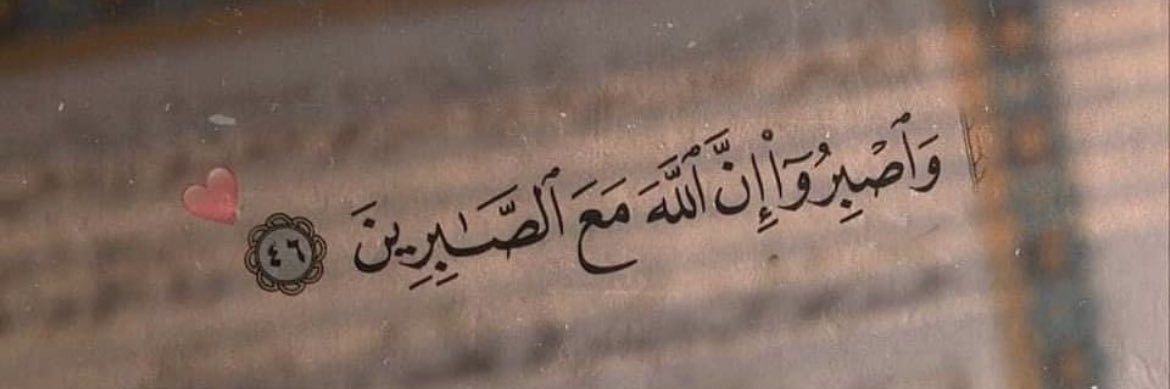 وَٱصۡبِرُوٓاْ إِنَّ ٱللَّهَ مَعَ ٱلصَّٰبِرِينَ ٤٦